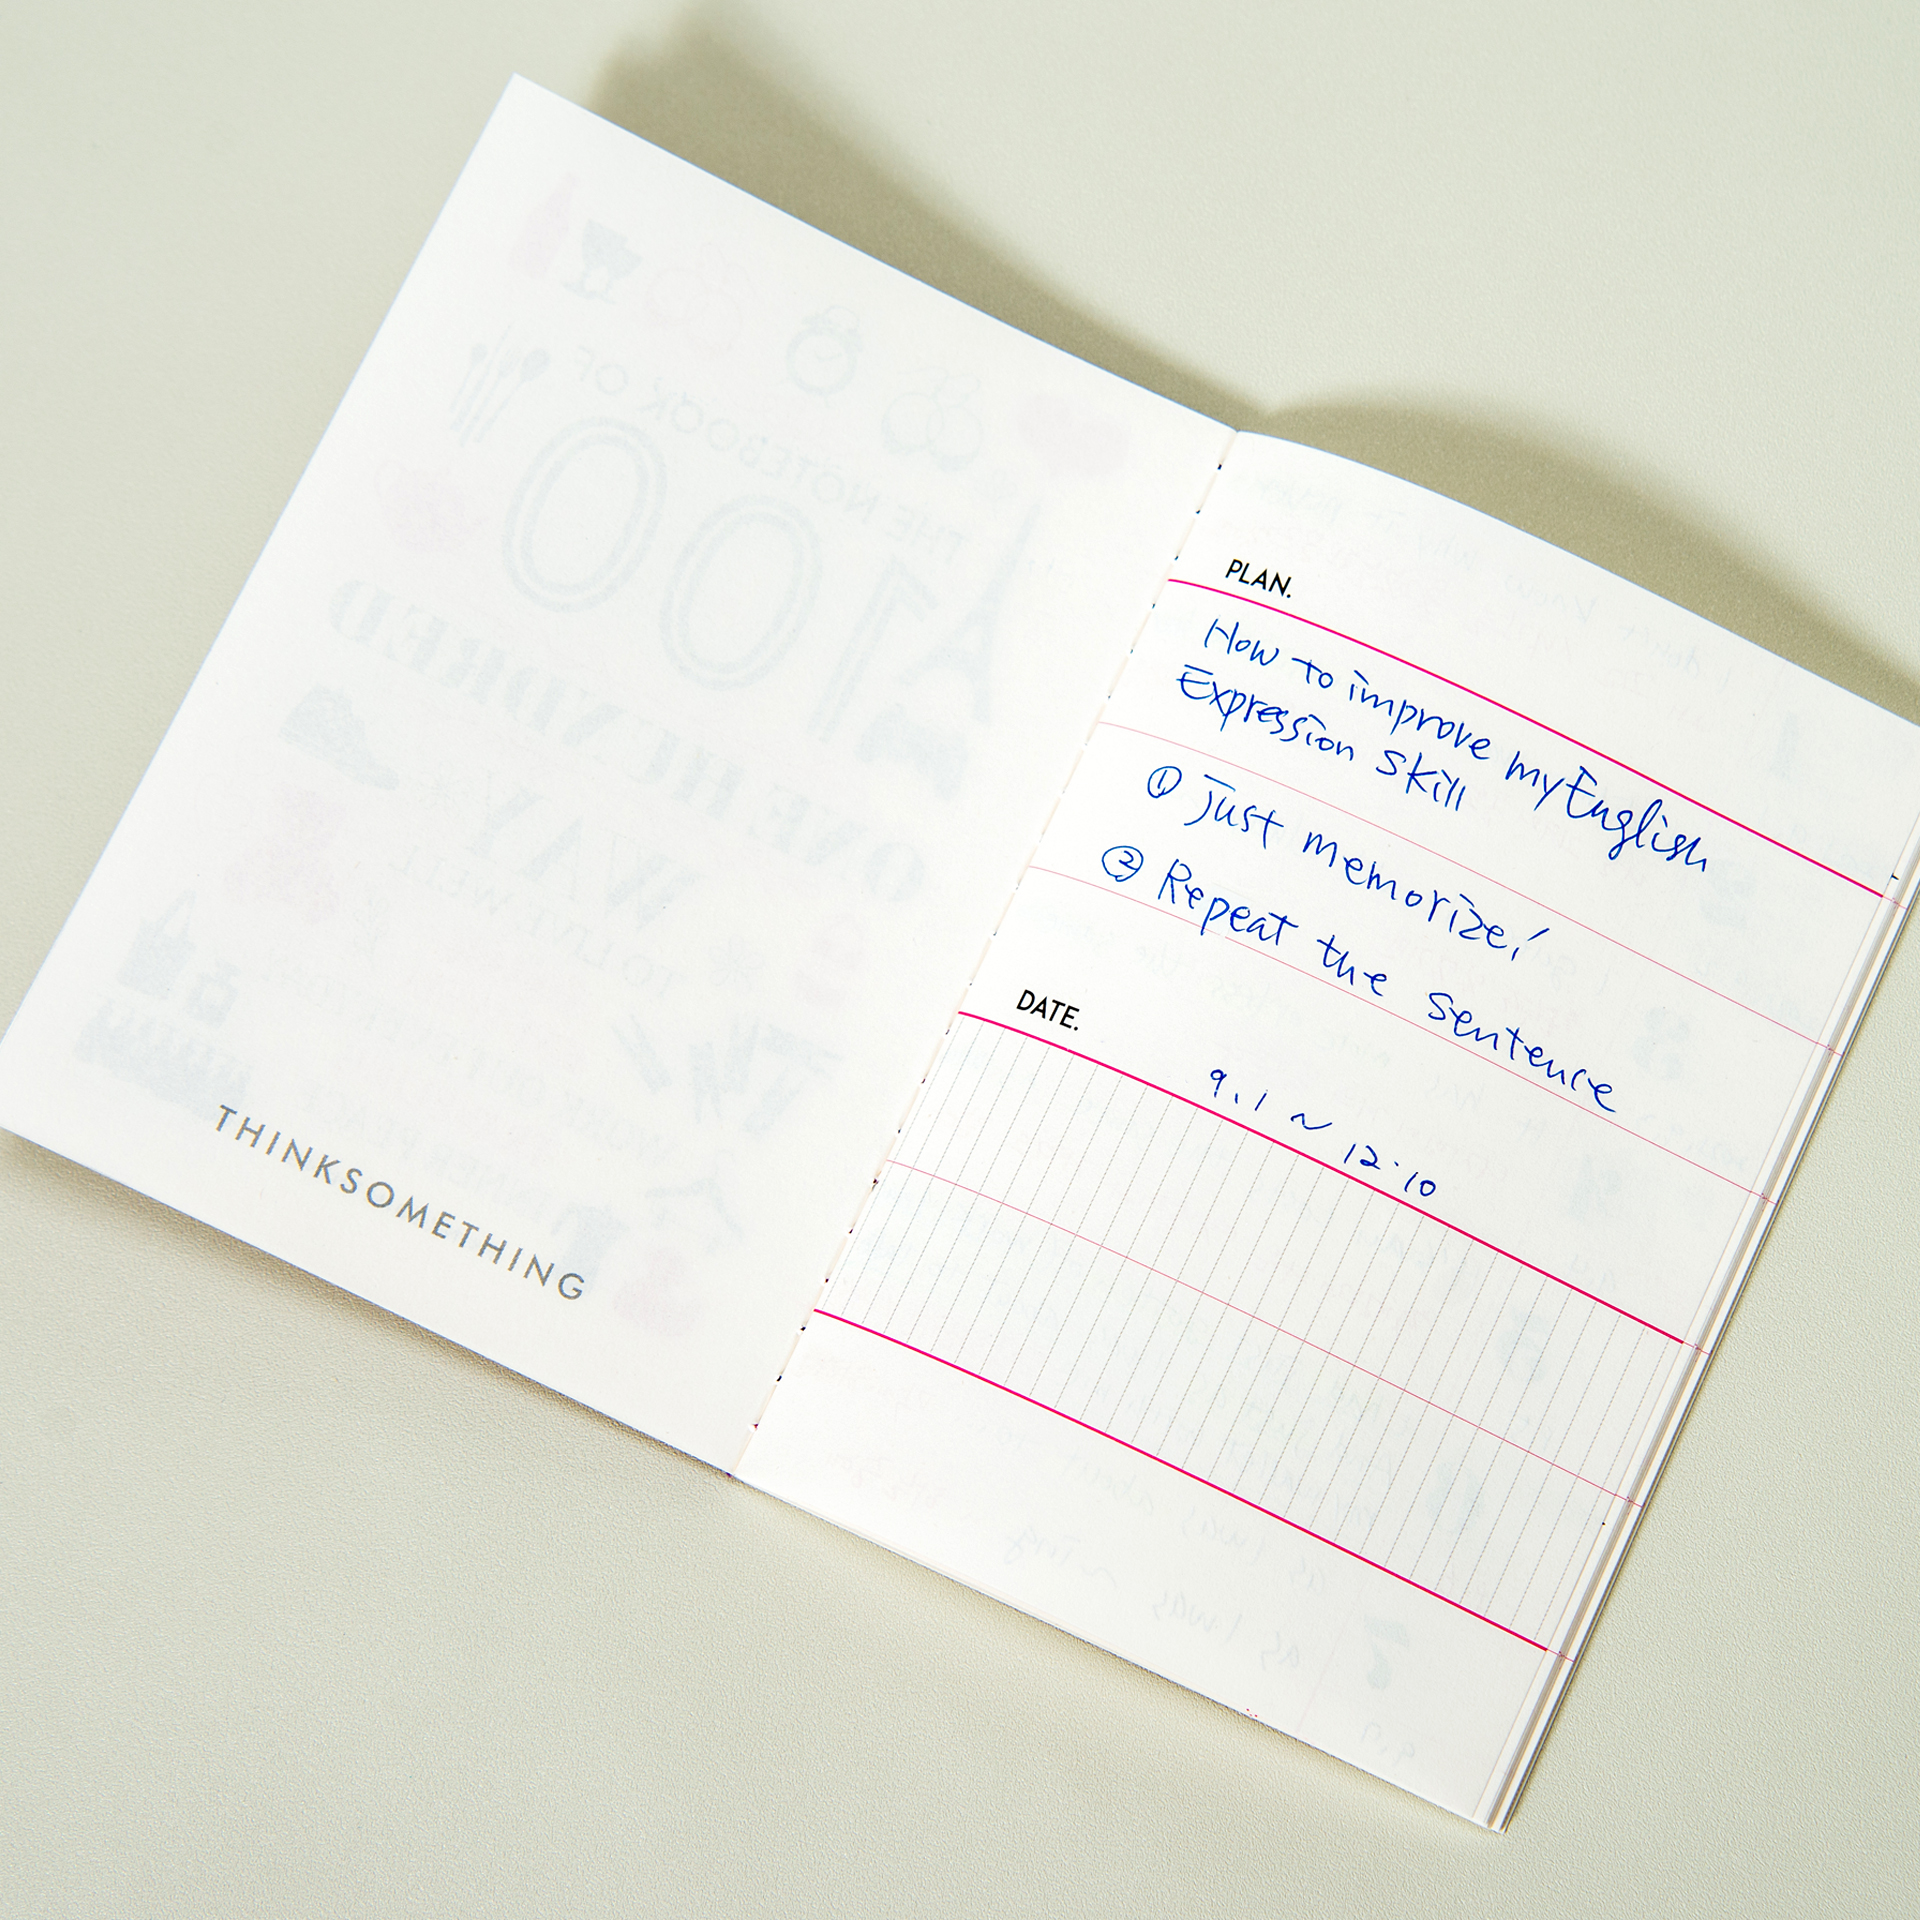 THINKSOMETHING
PLAN.
How to improve my English
Expression skill
① Just memorize!
② Repeat the sentence
DATE.
9.1 ~ 12.10